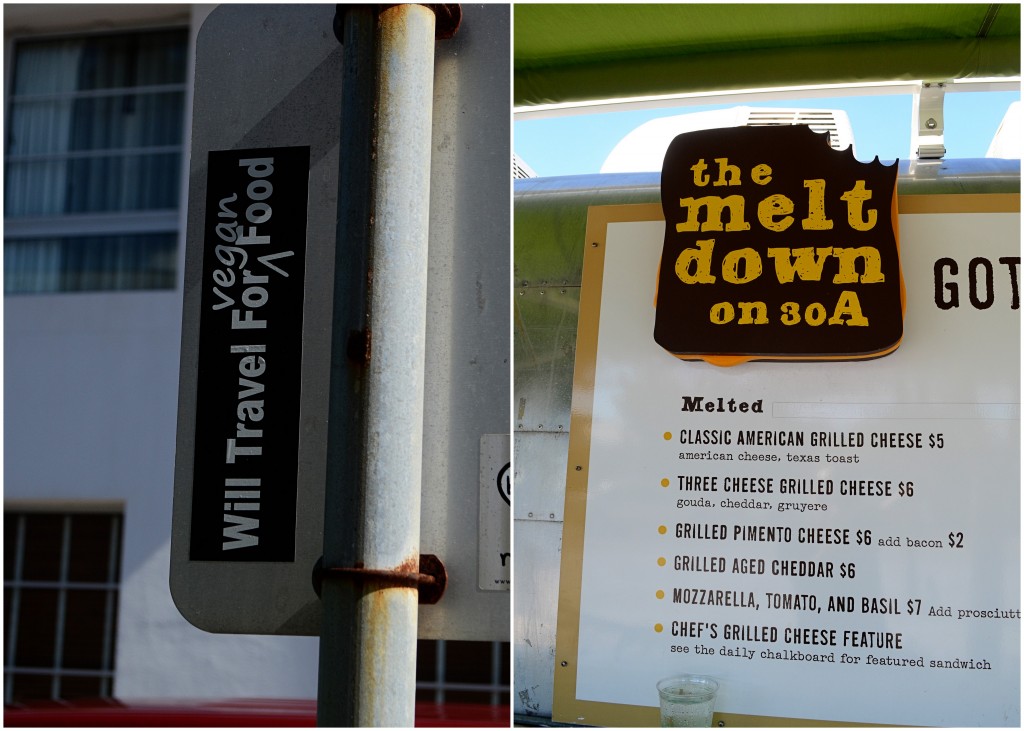 Will Travel For vegan Food
the
melt
down
on 30A
GOT
Melted
CLASSIC AMERICAN GRILLED CHEESE $5
american cheese, texas toast
THREE CHEESE GRILLED CHEESE $6
gouda, cheddar, gruyere
GRILLED PIMENTO CHEESE $6 add bacon $2
GRILLED AGED CHEDDAR $6
MOZZARELLA, TOMATO, AND BASIL $7 Add prosciutt
CHEF'S GRILLED CHEESE FEATURE
see the daily chalkboard for featured sandwich